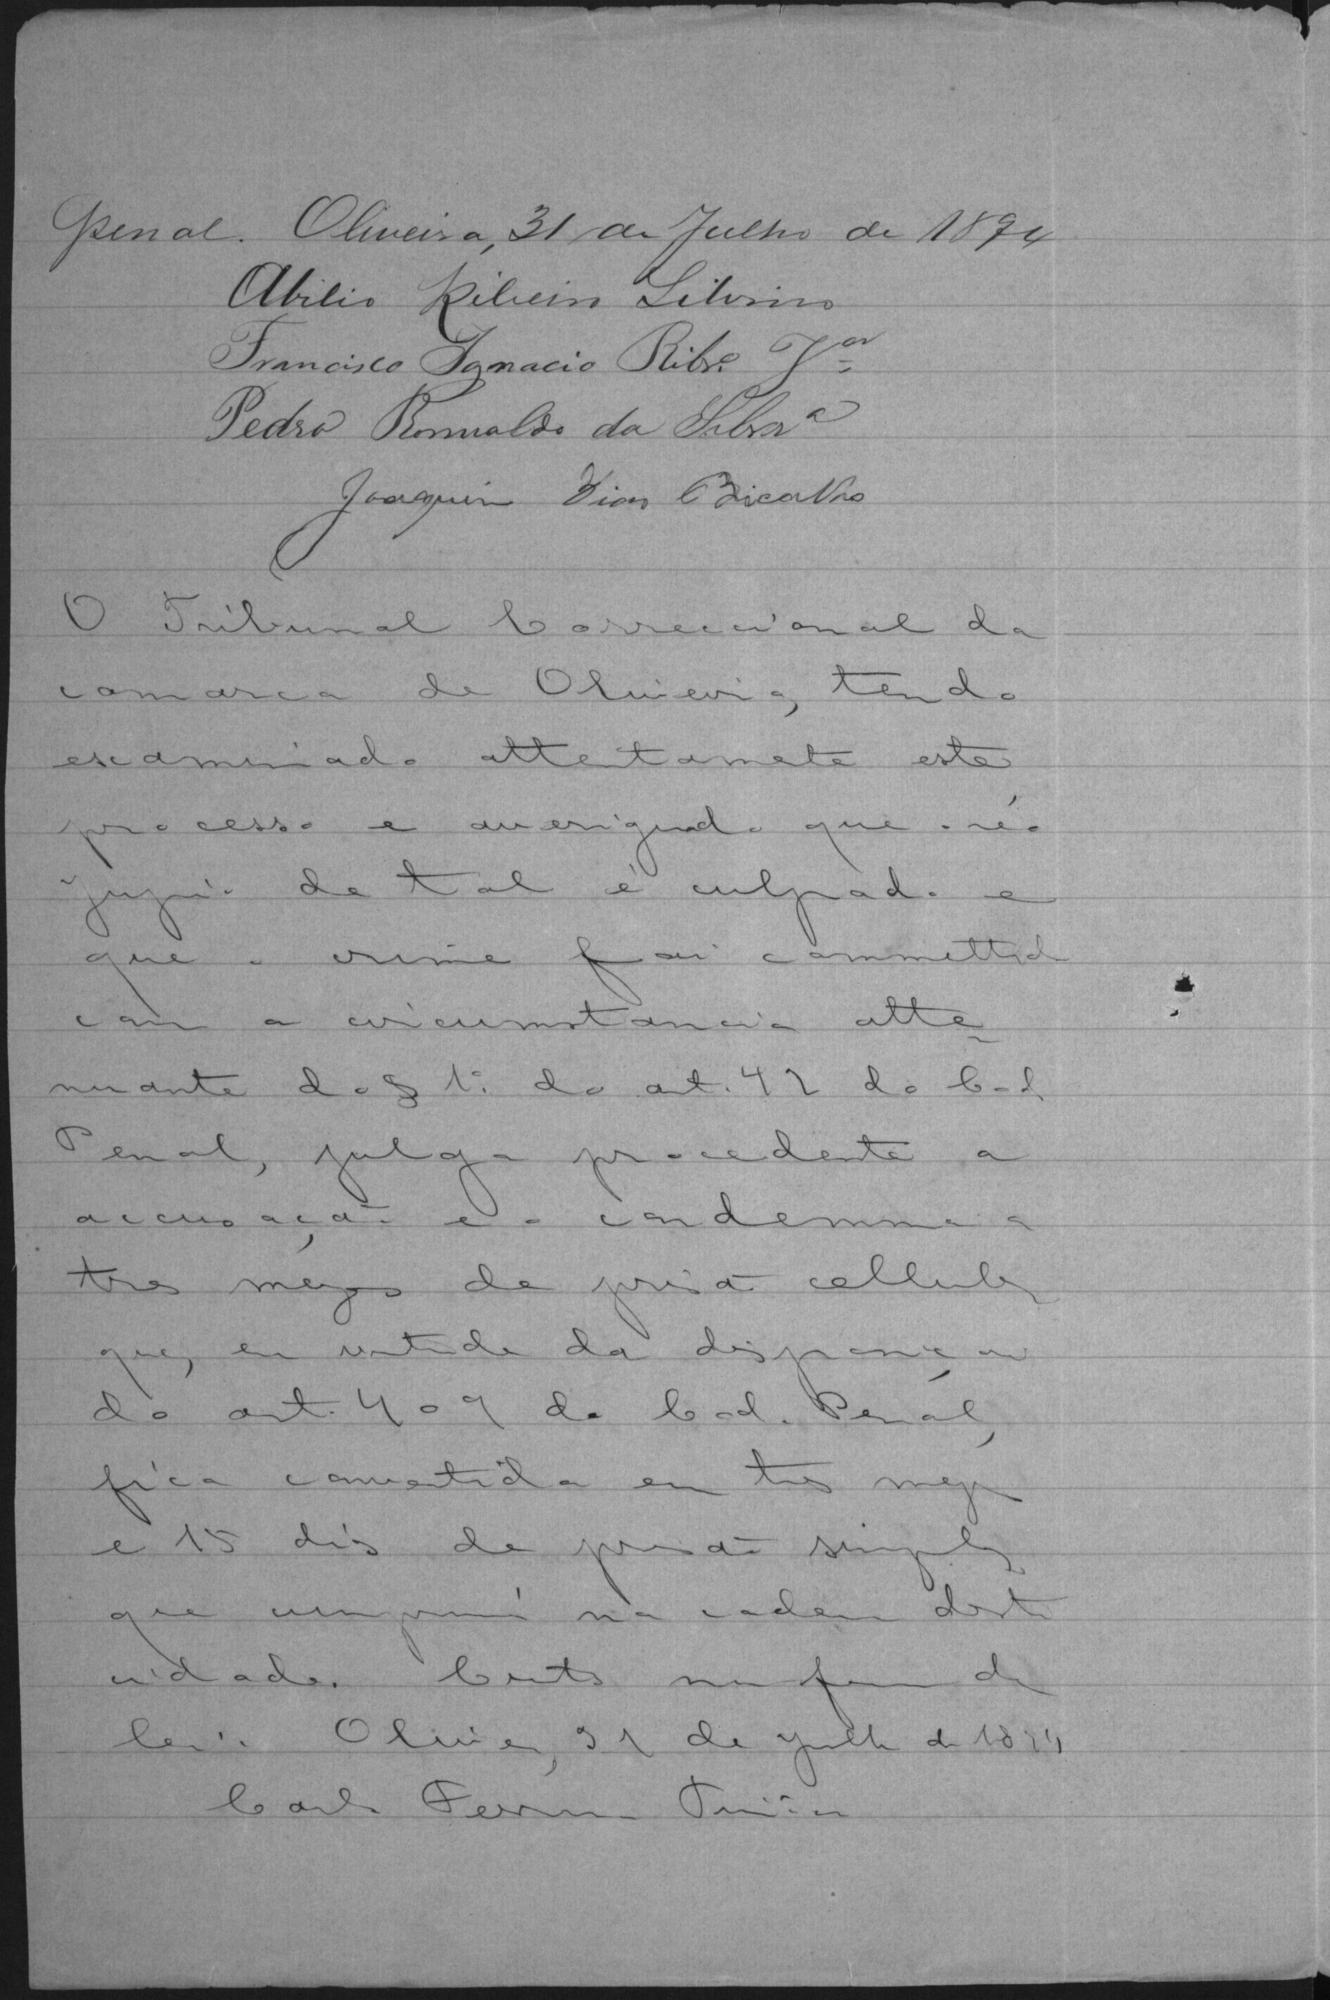 Penal. Oliveira, 31 de Julho de 1894
Abilio Ribeiro Silvino
Francisco Ignacio Ribrº Jor
Pedro Romualdo da Silvrª
Joaquim Dias Bicalho
O Tribunal Correccional da
comarca de Oliveira, tendo
examinado attentamente este
processo e averiguado que o réo
de tal é culpado e
que o crime foi committido
com a circumstancia atte
nuante do § 1º do art. 42 do Cod.
Penal, julga procedente a
accusação e o condemna a
tres mezes de prisão cellular
que, em virtude da disposição
do art. 409 do Cod. Penal,
fica convertida em tres mezes
e 15 dias de prisão simples
que cumprirá na cadeia desta
cidade. Custas na forma da
lei. Oliveira, 31 de julho de 1894
Carlos Ferreira